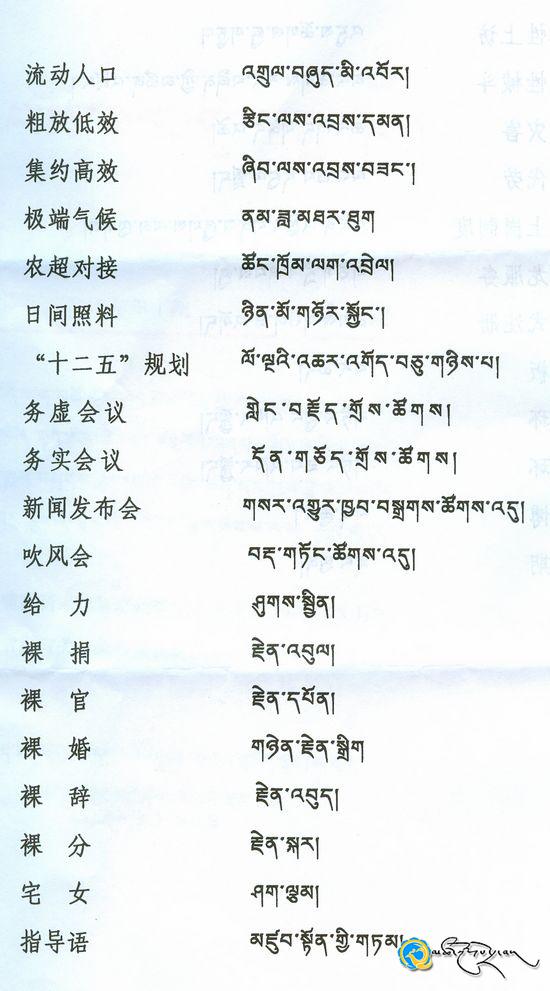 流动人口 འགྲུལ་བཞུད་མི་འབོར།
粗放低效 རྩིང་ལས་འབྲས་དམན།
集约高效 ཞིབ་ལས་འབྲས་བཟང་།
极端气候 ནམ་ཟླ་མཐར་ཐུག
农超对接 ཚོང་ཁྲོམ་ལག་འབྲེལ།
日间照料 ཉིན་མོ་གཉོར་སྐྱོང་།
“十二五”规划 ལོ་ལྔའི་འཆར་འགོད་བཅུ་གཉིས་པ།
务虚会议 གླེང་བརྗོད་གྲོས་ཚོགས།
务实会议 དོན་གཅོད་གྲོས་ཚོགས།
新闻发布会 གསར་འགྱུར་ཁྱབ་བསྒྲགས་ཚོགས་འདུ།
吹风会 བརྡ་གཏོང་ཚོགས་འདུ།
给 力 ཤུགས་སྦྱིན།
裸 捐 རྗེན་འབུལ།
裸 官 རྗེན་དཔོན།
裸 婚 གཉེན་རྗེན་སྒྲིག
裸 辞 རྗེན་འབུད།
裸 分 རྗེན་སྐར།
宅 女 ཤག་ལྕམ།
指导语 མཛུབ་སྟོན་གྱི་གཏམ།